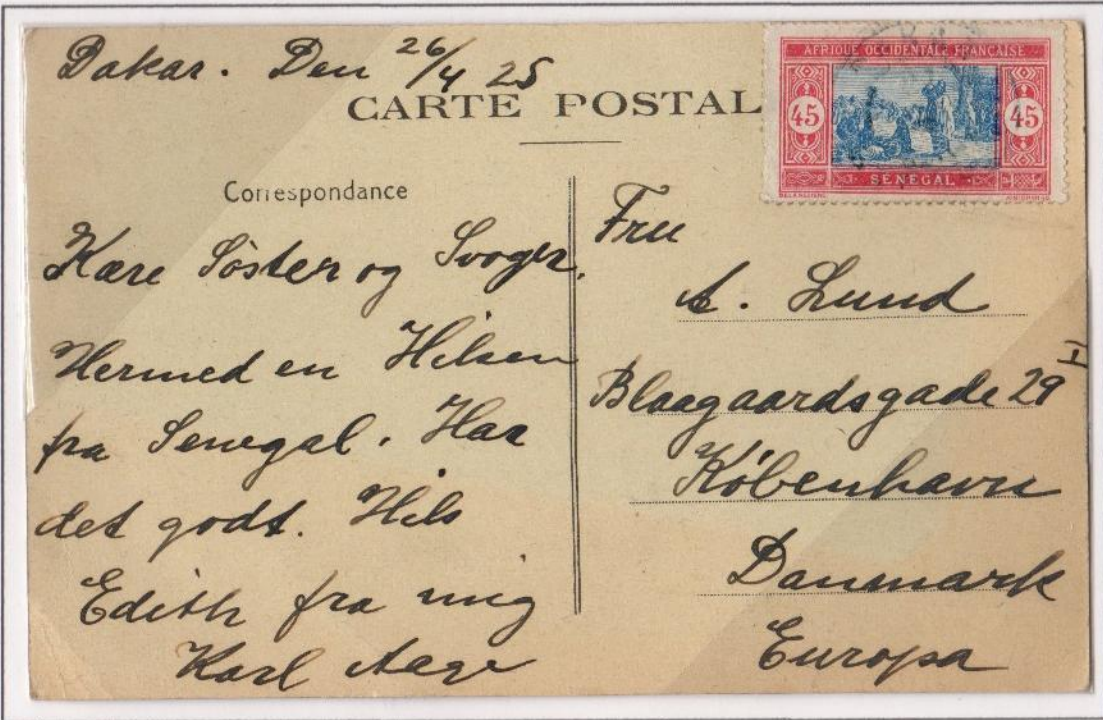 Dakar. Den 26/4 25
CARTE POSTAL
AFRIQUE OCCIDENTALE FRANÇAISE
45 45
SENEGAL
Correspondance
Kære Søster og Svoger.
Hermed en Hilsen
fra Senegal. Har
det godt. Hils
Edith fra mig
Karl Aage
Fru
A. Lund
Blaagaardsgade 29 I
København
Danmark
Europa